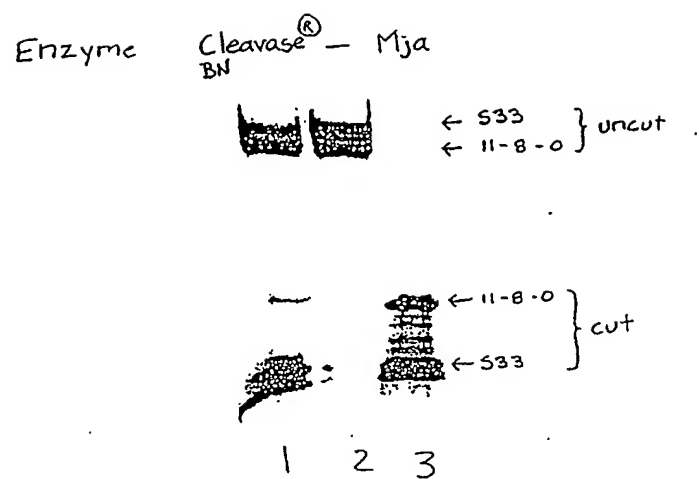 Enzyme Cleavase® – Mja
BN
← S33
← 11-8-0
} uncut
← 11-8-0
← S33
} cut
1 2 3